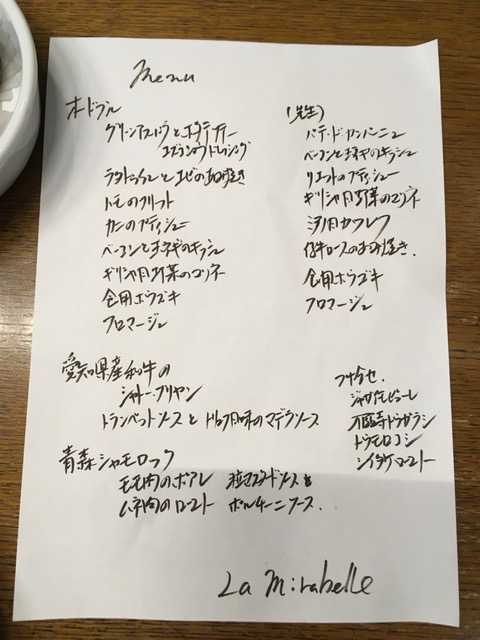 Menu
オードブル
グリーンアスパラとホタテ
ドレッシング
ラタトゥイユとエビの
トモのフリット
カニのプティシュー
ベーコンと玉ネギのキッシュ
ギリシャ風野菜のマリネ
食用ホウズキ
フロマージュ
(先生)
パテ・ド・カンパーニュ
ベーコンと玉ネギのキッシュ
リエットのプティシュー
ギリシャ風野菜のマリネ
食用ホウズキ
フロマージュ
愛知県産和牛の
シャトーブリヤン
トランペットソースとトリュフ風味のマデラソース
青森シャモロック
モモ肉のポアレ 粒マスタードソース
ムネ肉のロースト ポルチーニソース.
つけ合せ.
ジャガイモピューレ
万願寺トウガラシ
トウモロコシ
シイタケロースト
La Mirabelle